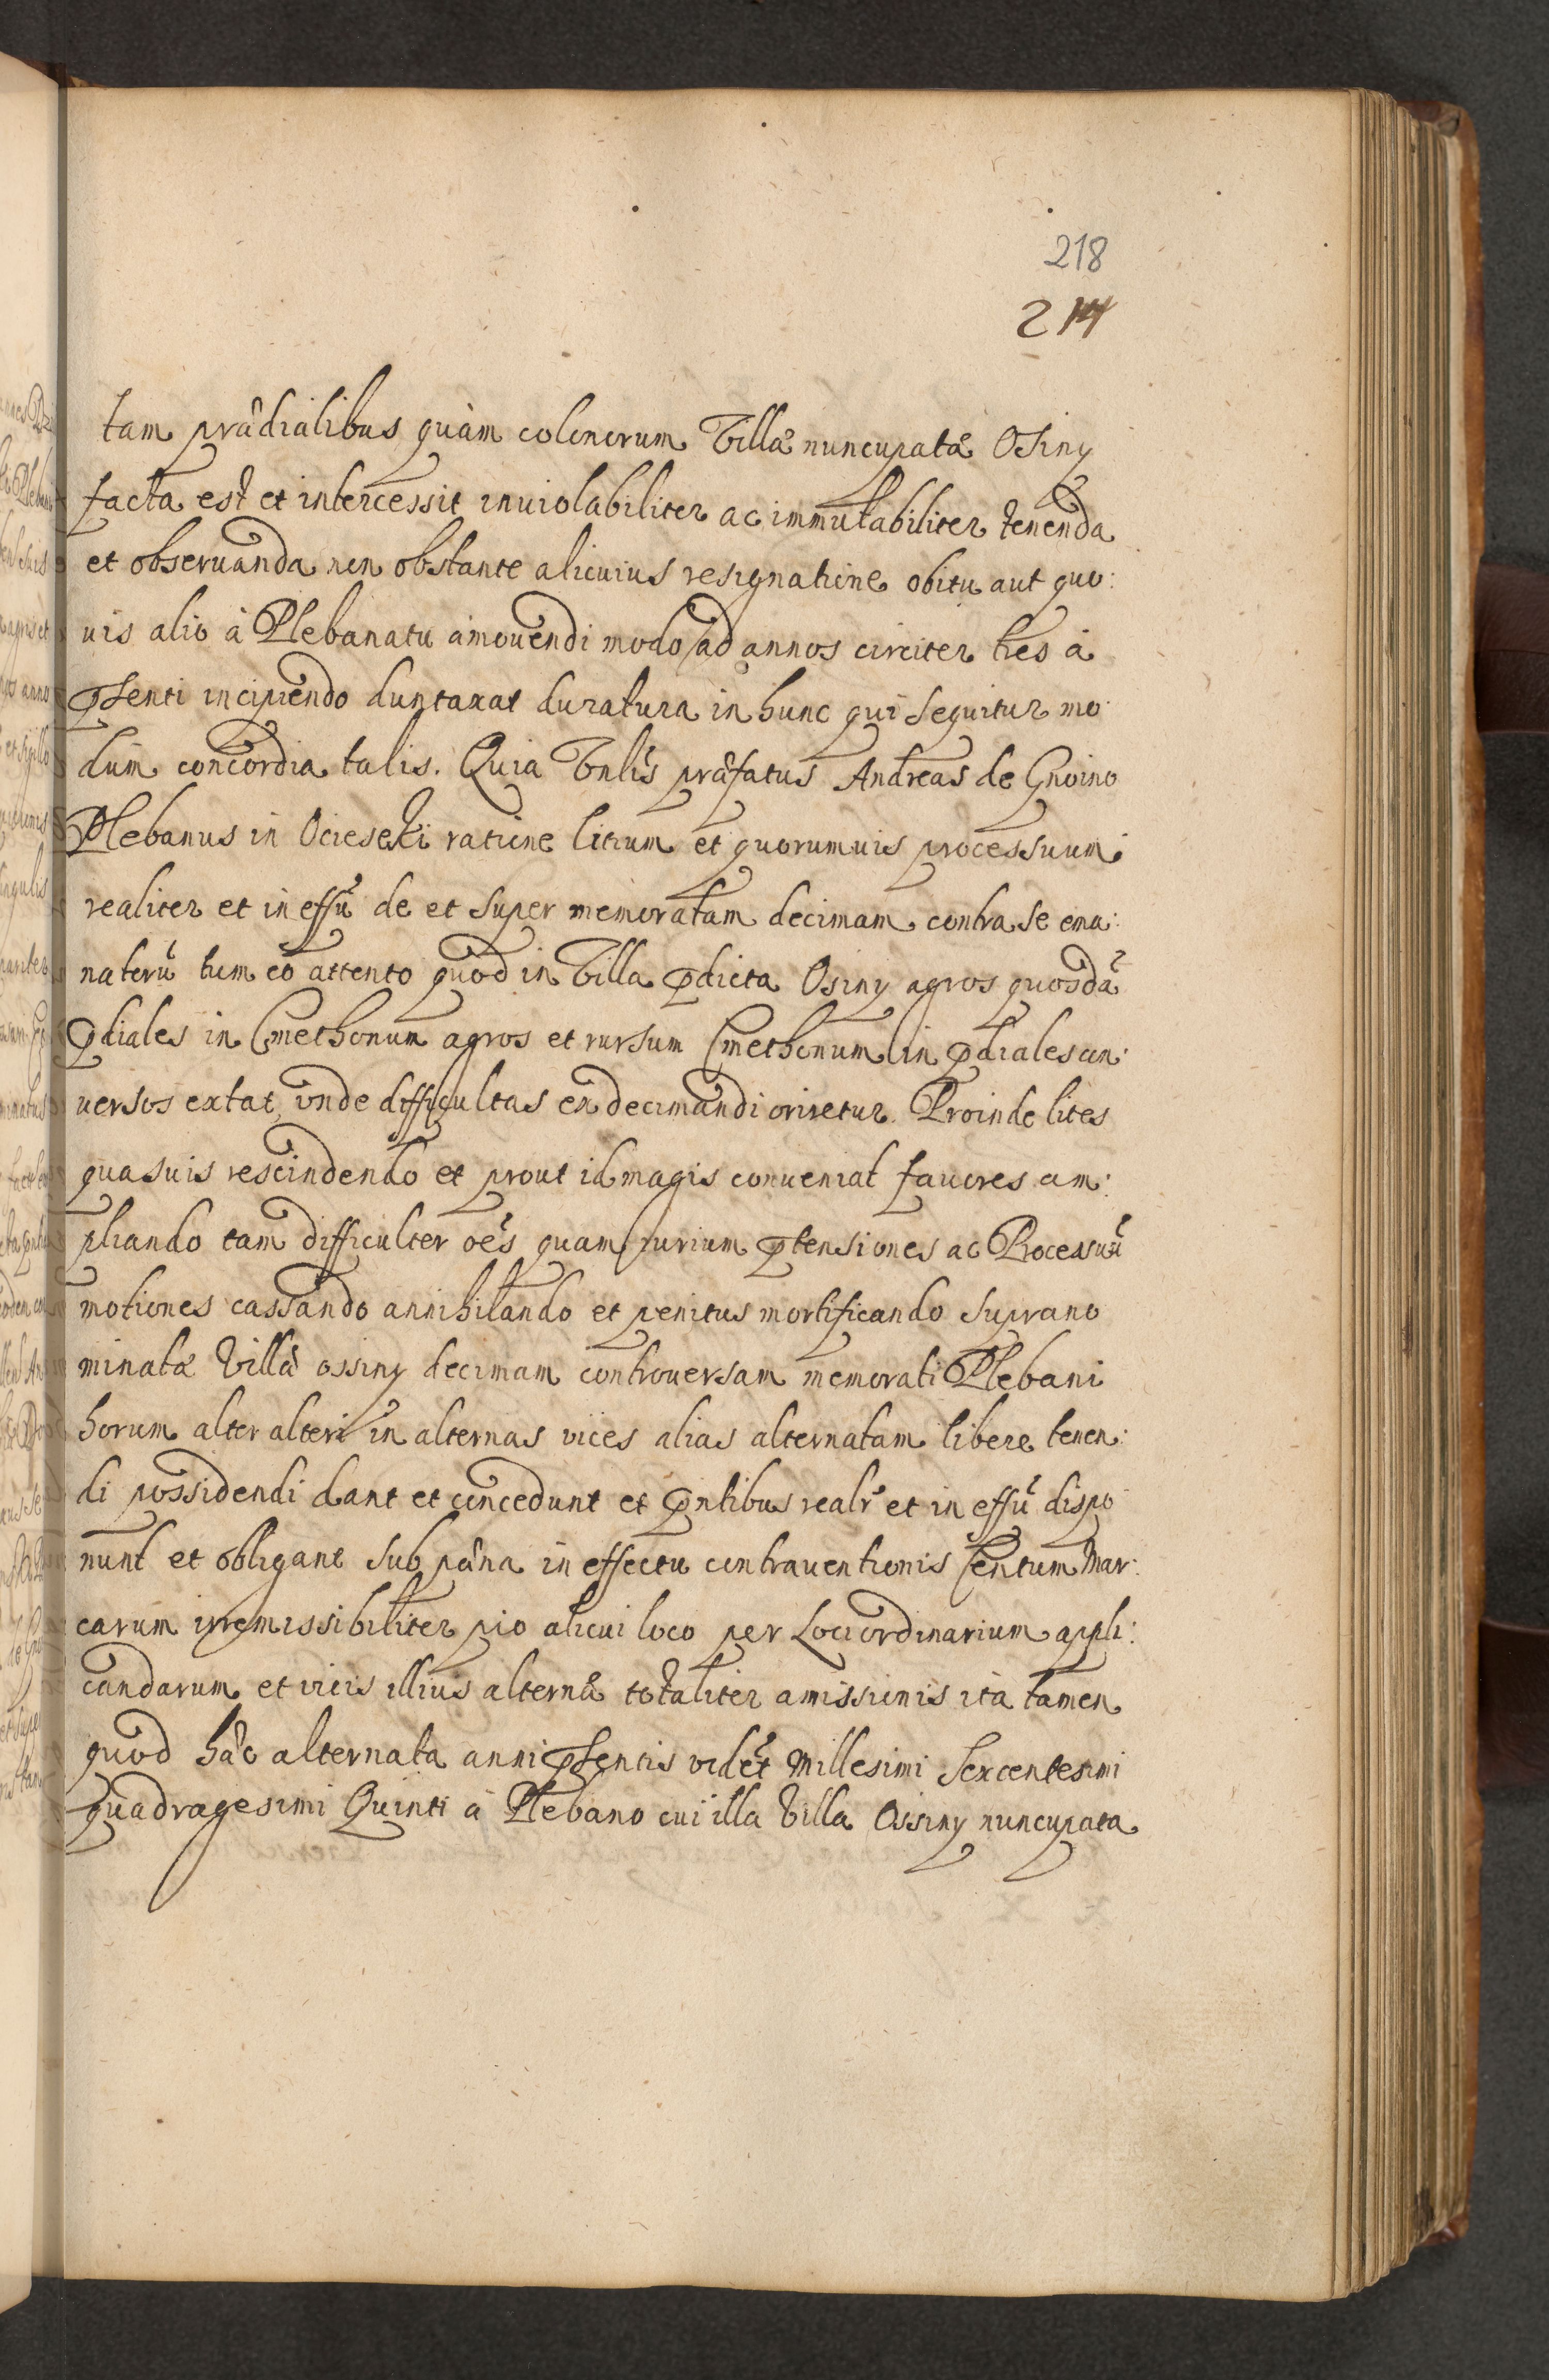 218
214
tam prædialibus quàm colonorum Villæ nuncupatæ Osiny
facta est et intercessit inuiolabiliter ac immutabiliter tenenda
et obseruanda non obstante alicuius resignatione obitu aut quo:
uis alio à Plebanatu amouendi modo ad annos circiter tres à
pſenti incipiendo duntaxat duratura in hunc qui sequitur mo
dum concordia talis. Quia Vnlis præfatus Andreas de Gnoino
Plebanus in Ocieseki ratione litium et quorumuis processuum
realiter et in effũ de et super memoratam decimam contra se ema:
natorũ tum eo attento quod in Villa pdicta Osiny agros quosdã
pdiales in Cmethonum agros et rursum Cmethonum in pdiales con:
uersos extat, vnde difficultas ex decimandi oriretur. Proinde lites
quasuis rescindendo et prout id magis conueniat fauores am:
pliando tam difficulter oẽs quam iurium ptensiones ac Processuũ
motiones cassando annihilando et penitus mortificando suprano
minatæ Villæ ossiny decimam controuersam memorati Plebani
horum alter alteri in alternas vices alias alternatam libere tenen:
di possidendi dant et concedunt et pntibus realr et in effũ dispo
nunt et obligant sub pæna in effectu contrauentionis Centum Mar:
carum irremissibiliter pio alicui loco per Loci ordinarium appli:
candarum et vicis illius alternæ totaliter amissionis ita tamen
quod hæc alternata anni pſentis videt Millesimi Sexcentesimi
quadragesimi Quinti à Plebano cui illa Villa Ossiny nuncupata